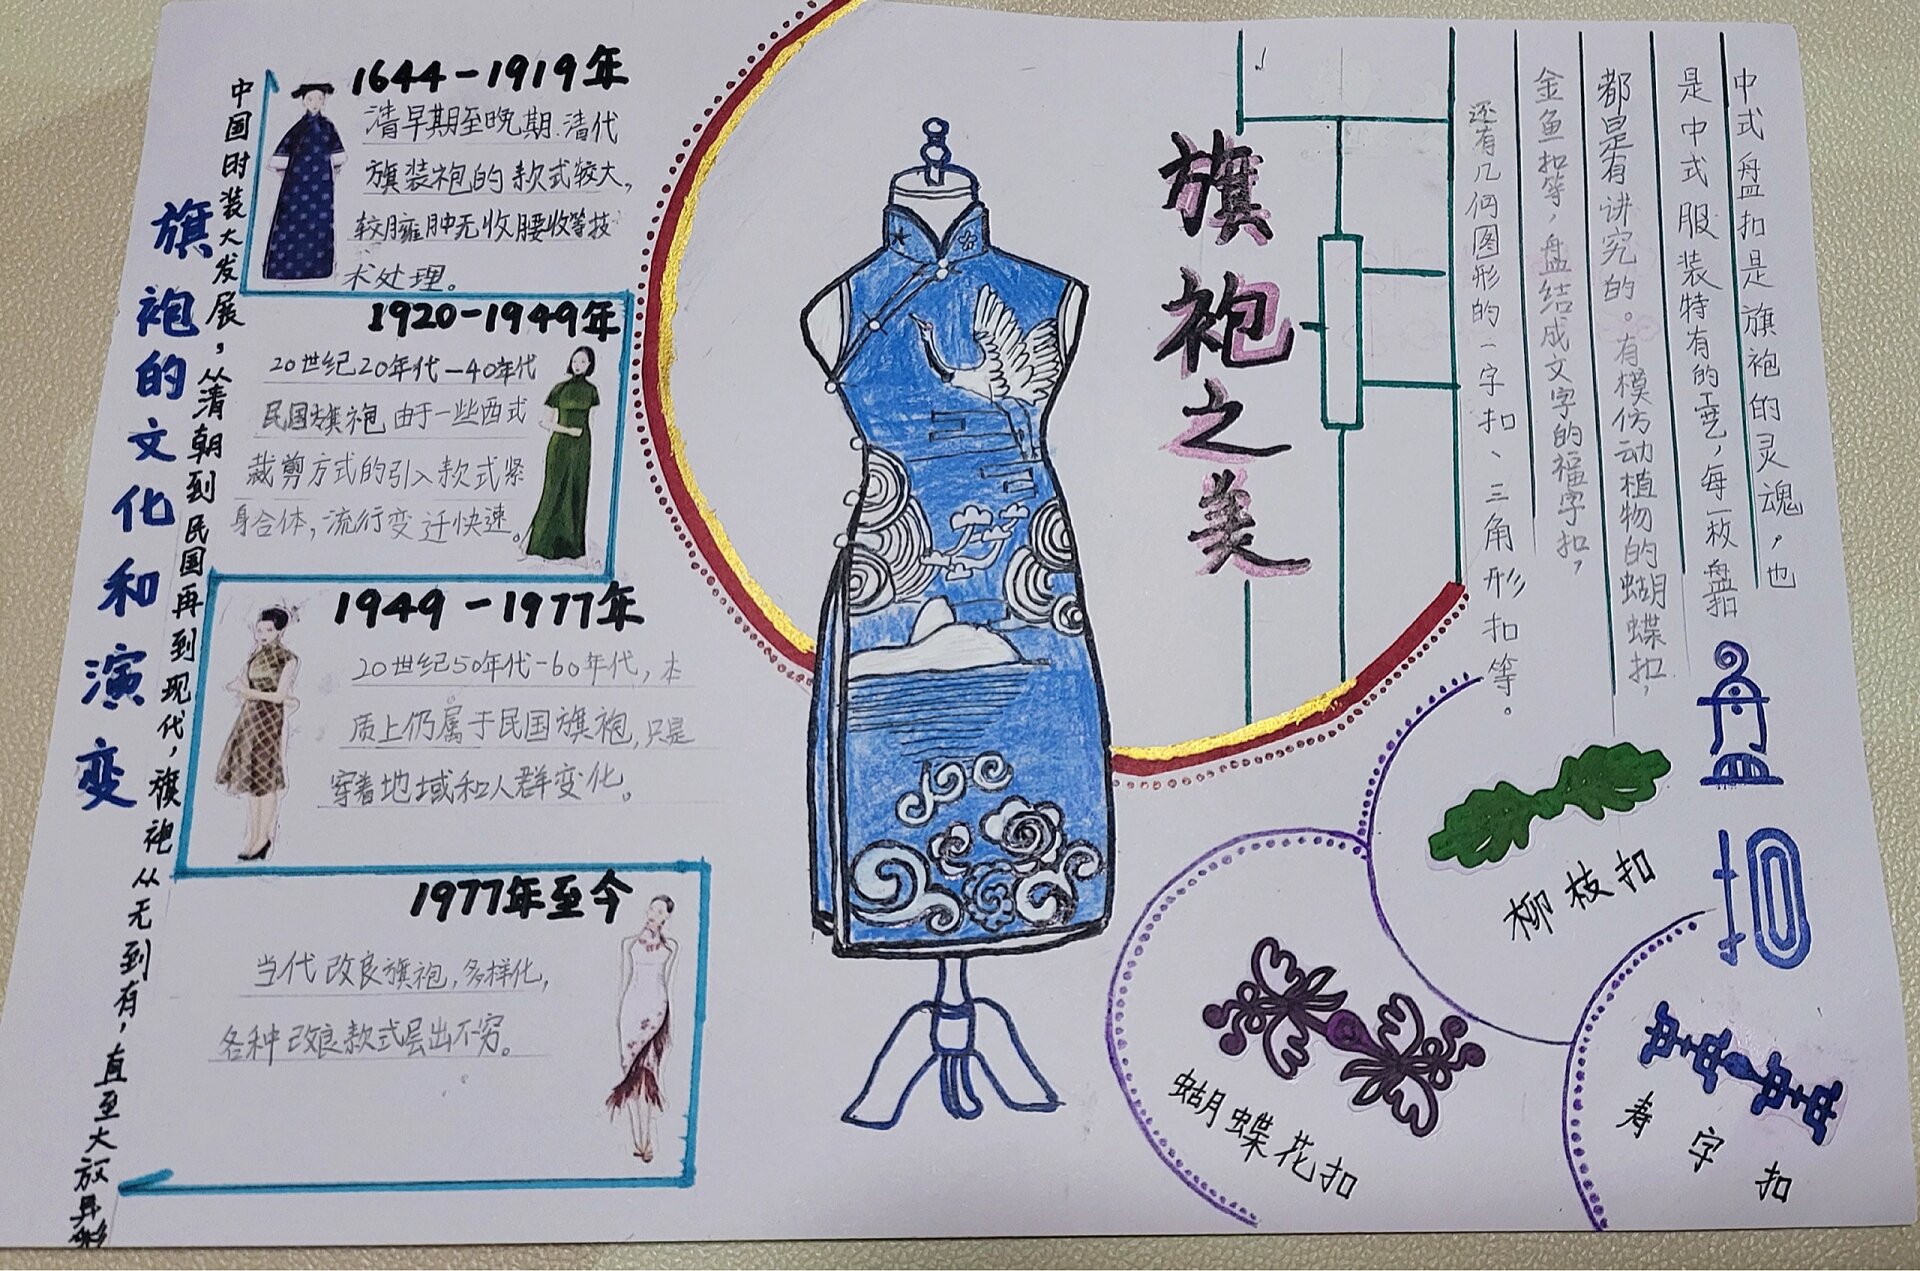 旗袍的文化和演变
中国时装大发展，从清朝到民国再到现代，旗袍从无到有，直至大放异彩
1644-1919年
清早期至晚期.清代
旗装袍的款式较大，
较臃肿无收腰收等技
术处理。
1920-1949年
20世纪20年代-40年代
民国旗袍由于一些西式
裁剪方式的引入款式紧
身合体，流行变迁快速。
1949-1977年
20世纪50年代-60年代，本
质上仍属于民国旗袍，只是
穿着地域和人群变化。
1977年至今
当代改良旗袍，多样化，
各种改良款式层出不穷。
旗袍之美
中式盘扣是旗袍的灵魂，也
是中式服装特有的工艺，每一枚盘扣
都是有讲究的。有模仿动植物的蝴蝶扣，
金鱼扣等，盘结成文字的福字扣，
还有几何图形的一字扣、三角形扣等。
盘扣
柳枝扣
蝴蝶花扣
寿字扣